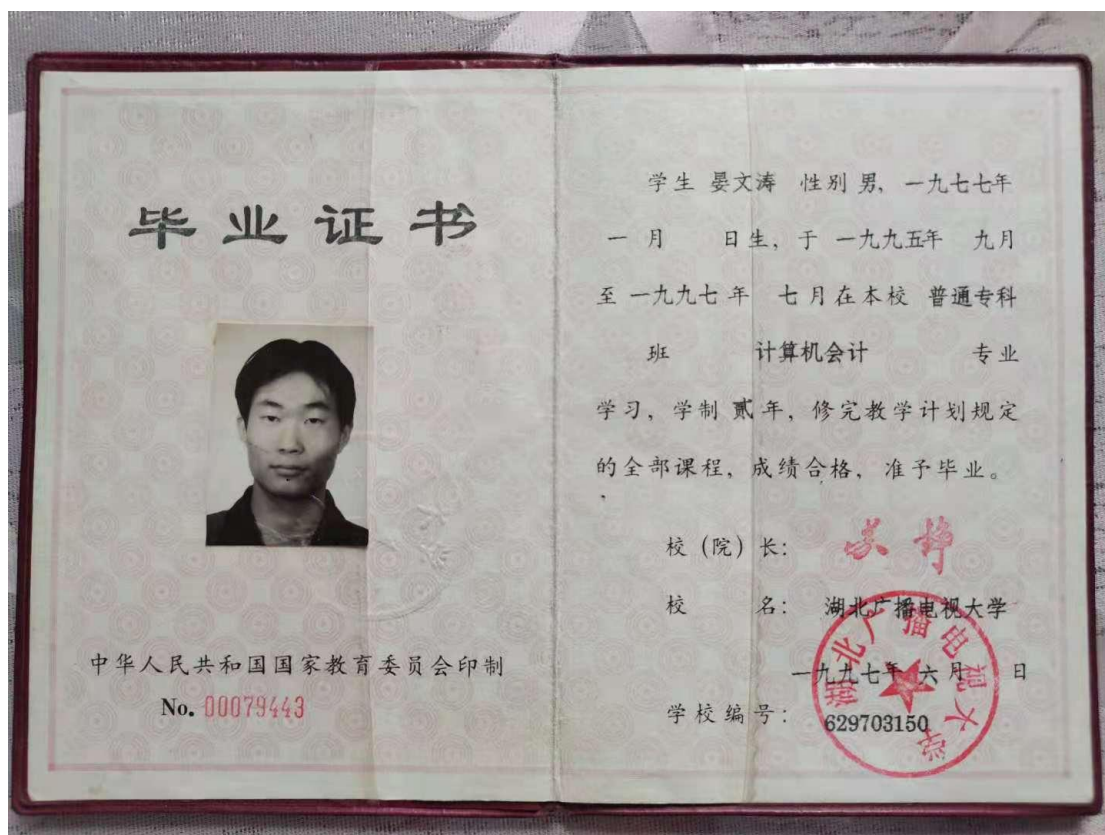 毕业证书
中华人民共和国国家教育委员会印制
No. 00079443
学生 晏文涛 性别 男, 一九七七年
一 月 日生, 于 一九九五年 九月
至 一九九七 年 七月在本校 普通专科
班 计算机会计 专业
学习, 学制 贰 年, 修完教学计划规定
的全部课程, 成绩合格, 准予毕业。
校 (院) 长:
校 名: 湖北广播电视大学
一九九七年 六 月 日
学校编号: 629703150
湖北广播电视大学